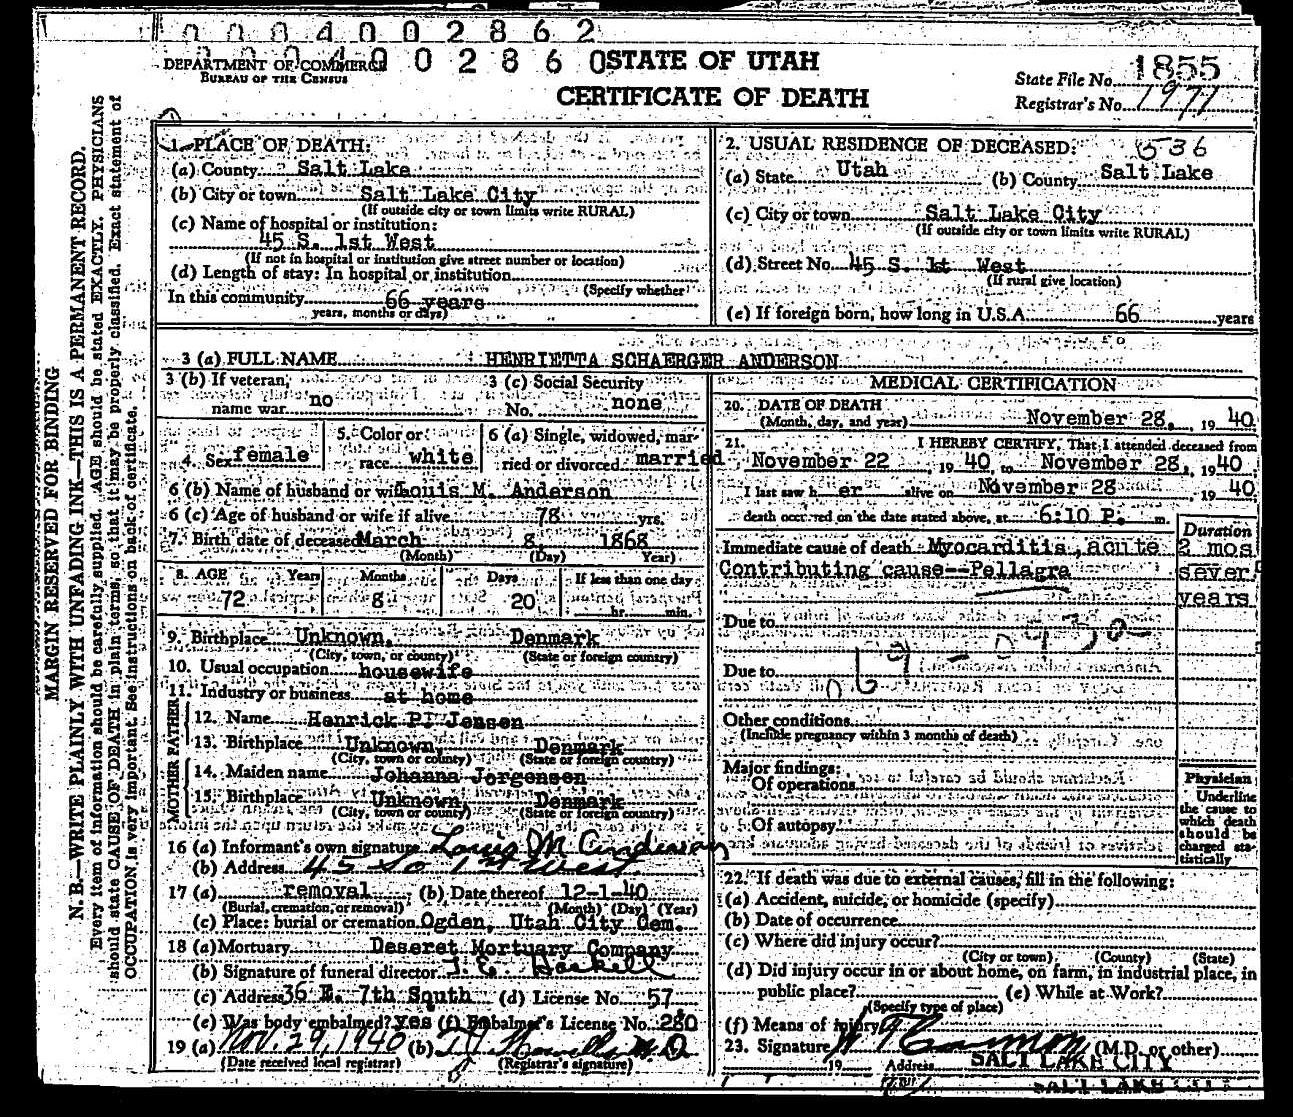 0004002862
0004002860
DEPARTMENT OF COMMERCE
BUREAU OF THE CENSUS
STATE OF UTAH
CERTIFICATE OF DEATH
State File No. 1855
Registrar's No. 1971
MARGIN RESERVED FOR BINDING
N. B.—WRITE PLAINLY WITH UNFADING INK—THIS IS A PERMANENT RECORD.
Every item of information should be carefully supplied. AGE should be stated EXACTLY. PHYSICIANS
should state CAUSE OF DEATH in plain terms, so that it may be properly classified. Exact statement of
OCCUPATION is very important. See instructions on back of certificate.
1. PLACE OF DEATH:
(a) County Salt Lake
(b) City or town Salt Lake City
(If outside city or town limits write RURAL)
(c) Name of hospital or institution:
45 S. 1st West
(If not in hospital or institution give street number or location)
(d) Length of stay: In hospital or institution
(Specify whether
In this community 66 years
years, months or days)
2. USUAL RESIDENCE OF DECEASED: 536
(a) State Utah (b) County Salt Lake
(c) City or town Salt Lake City
(If outside city or town limits write RURAL)
(d) Street No. 45 S. 1st West
(If rural give location)
(e) If foreign born, how long in U.S.A. 66 years
3 (a) FULL NAME HENRIETTA SCHAERGER ANDERSON
3 (b) If veteran, name war no
3 (c) Social Security No. none
4. Sex female
5. Color or race white
6 (a) Single, widowed, married or divorced married
6 (b) Name of husband or wife Louis M. Anderson
6 (c) Age of husband or wife if alive 78 yrs.
7. Birth date of deceased March 8 1868
(Month) (Day) Year)
8. AGE Years Months Days If less than one day
72 8 20 hr. min.
9. Birthplace Unknown, Denmark
(City, town, or county) (State or foreign country)
10. Usual occupation housewife
11. Industry or business at home
FATHER
12. Name Henrick P. Jensen
13. Birthplace Unknown, Denmark
(City, town or county) (State or foreign country)
MOTHER
14. Maiden name Johanna Jorgensen
15. Birthplace Unknown, Denmark
(City, town or county) (State or foreign country)
16 (a) Informant's own signature Louis M Anderson
(b) Address 45 So 1st West.
17 (a) removal (b) Date thereof 12-1-40
(Burial, cremation, or removal) (Month) (Day) (Year)
(c) Place: burial or cremation Ogden, Utah City Cem.
18 (a) Mortuary Deseret Mortuary Company
(b) Signature of funeral director J. E. Haskell
(c) Address 36 E. 7th South (d) License No. 57
(e) Was body embalmed? yes (f) Embalmer's License No. 280
19 (a) Nov. 29, 1940 (b)
(Date received local registrar) (Registrar's signature)
MEDICAL CERTIFICATION
20. DATE OF DEATH
(Month, day, and year) November 28, 1940.
21. I HEREBY CERTIFY, That I attended deceased from
November 22, 1940, to November 28, 1940.
I last saw her alive on November 28, 1940.
death occurred on the date stated above, at 6:10 P. m.
Duration
Immediate cause of death Myocarditis, acute 2 mos
Contributing cause--Pellagra sever.
years
Due to
Due to
Other conditions
(Include pregnancy within 3 months of death)
Major findings:
Of operations
Of autopsy
Physician
Underline
the cause to
which death
should be
charged sta-
tistically
22. If death was due to external causes, fill in the following:
(a) Accident, suicide, or homicide (specify)
(b) Date of occurrence
(c) Where did injury occur?
(City or town) (County) (State)
(d) Did injury occur in or about home, on farm, in industrial place, in
public place? (e) While at Work?
(Specify type of place)
(f) Means of injury
23. Signature (M.D. or other)
19 Address SALT LAKE CITY
SALT LAKE CITY